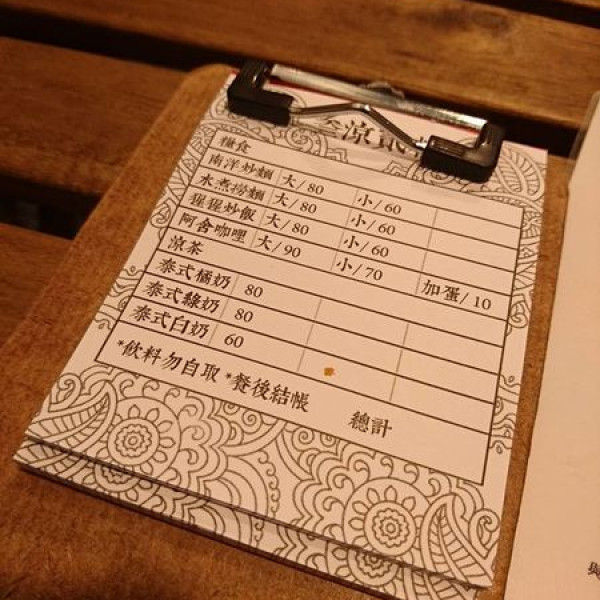 涼貳
糧食
南洋炒麵 大/80 小/60
水煮撈麵 大/80 小/60
猩猩炒飯 大/80 小/60
阿舍咖哩 大/90 小/70 加蛋/10
涼茶
泰式橘奶 80
泰式綠奶 80
泰式白奶 60
*飲料勿自取 *餐後結帳 總計
與